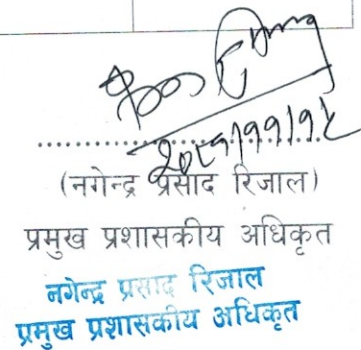 (नगेन्द्र प्रसाद रिजाल)
प्रमुख प्रशासकीय अधिकृत
नगेन्द्र प्रसाद रिजाल
प्रमुख प्रशासकीय अधिकृत